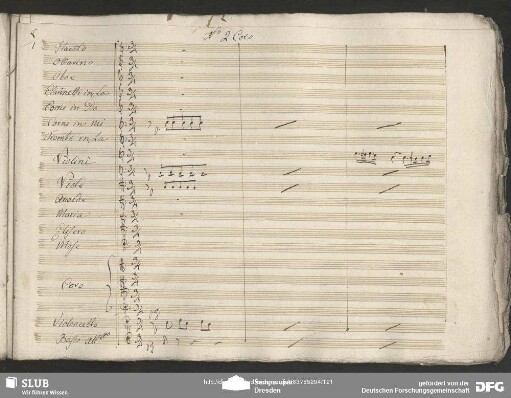 N° 2 Coro
Flauto
Ottavino
Oboe
Clarinetti in La
Corni in Do
Corni in Mi
Trombe in La
Violini
Viole
Maria
Elisero
Mosè
Coro
Violoncello
Basso
SLUB
Wir führen Wissen.
Dresden
gefördert von der
Deutschen Forschungsgemeinschaft
DFG